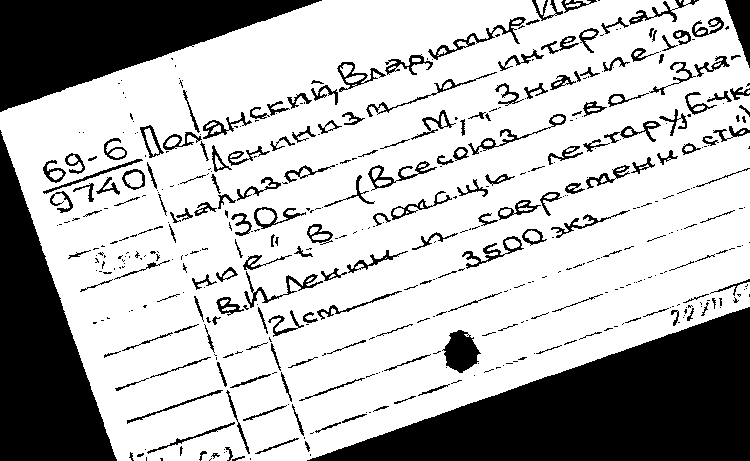 69-6
9740
Полянский, Владимир
Ленинизм и интернаци-
нализм. М., „Знание", 1969.
30с. (Всесоюз о-во „Зна-
ние". „В помощь лектору". Б-чка
„В.И. Ленин и современность")
21см 3500 экз.